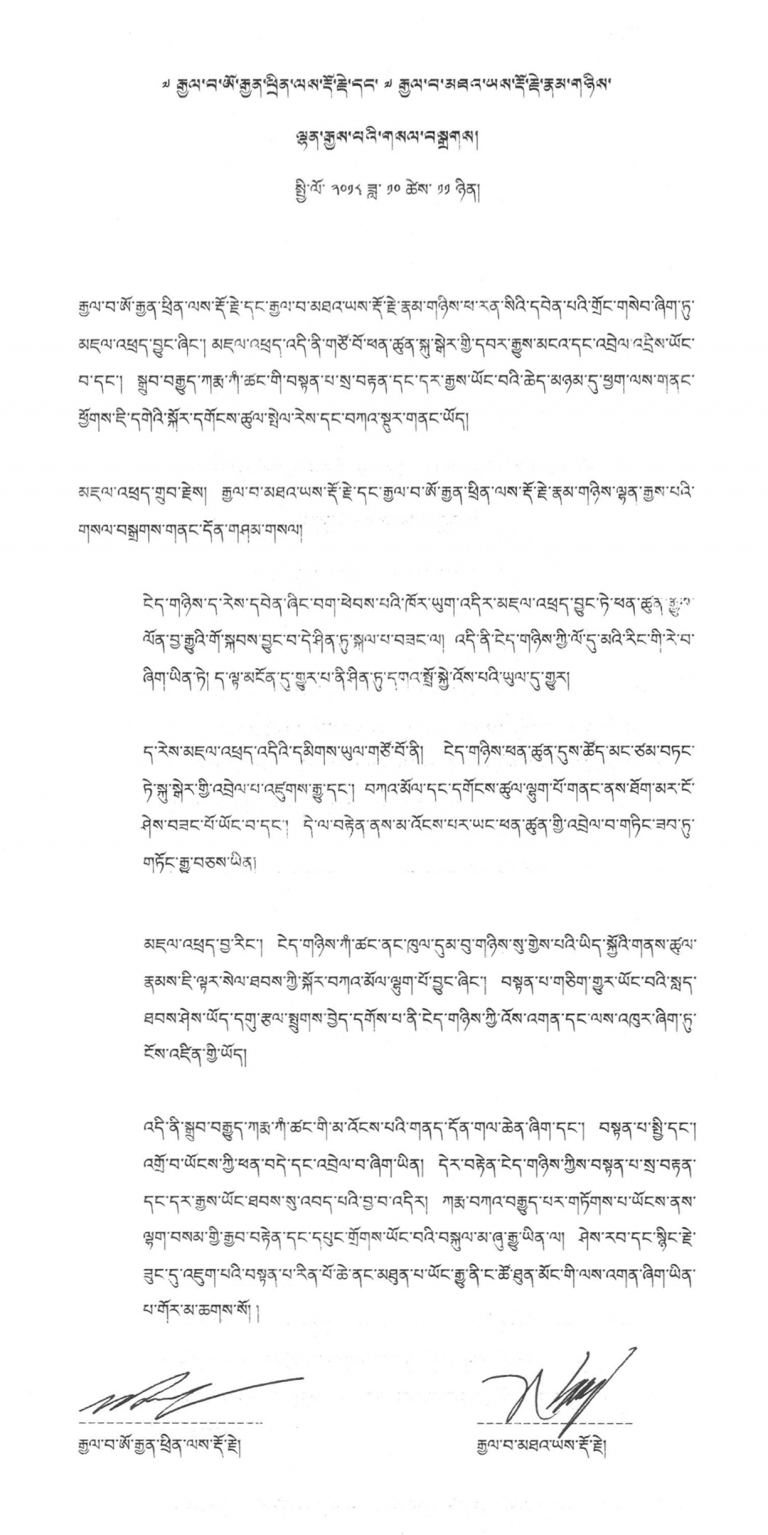 ༧ རྒྱལ་བ་ཨོ་རྒྱན་ཕྲིན་ལས་རྡོ་རྗེ་དང་ ༧ རྒྱལ་བ་མཐའ་ཡས་རྡོ་རྗེ་རྣམ་གཉིས་
ལྷན་རྒྱས་པའི་གསལ་བསྒྲགས།
སྤྱི་ལོ་ ༢༠༡༨ ཟླ་ ༡༠ ཚེས་ ༡༡ ཉིན།
རྒྱལ་བ་ཨོ་རྒྱན་ཕྲིན་ལས་རྡོ་རྗེ་དང་རྒྱལ་བ་མཐའ་ཡས་རྡོ་རྗེ་རྣམ་གཉིས་ཕ་རན་སིའི་དབེན་པའི་གྲོང་གསེབ་ཞིག་ཏུ་
མཇལ་འཕྲད་བྱུང་ཞིང་། མཇལ་འཕྲད་འདི་ནི་གཙོ་བོ་ཕན་ཚུན་སྐུ་སྒེར་གྱི་དབར་རྒྱུས་མངའ་དང་འབྲེལ་འདྲིས་ཡོང་
བ་དང་། སྒྲུབ་བརྒྱུད་ཀརྨ་ཀཾ་ཚང་གི་བསྟན་པ་སྲ་བརྟན་དང་དར་རྒྱས་ཡོང་བའི་ཆེད་མཉམ་དུ་ཕྱག་ལས་གནང་
ཕྱོགས་ཇི་དགེའི་སྐོར་དགོངས་ཚུལ་སྤེལ་རེས་དང་བཀའ་སྡུར་གནང་ཡོད།
མཇལ་འཕྲད་གྲུབ་རྗེས། རྒྱལ་བ་མཐའ་ཡས་རྡོ་རྗེ་དང་རྒྱལ་བ་ཨོ་རྒྱན་ཕྲིན་ལས་རྡོ་རྗེ་རྣམ་གཉིས་ལྷན་རྒྱས་པའི་
གསལ་བསྒྲགས་གནང་དོན་གཤམ་གསལ།
ངེད་གཉིས་ད་རེས་དབེན་ཞིང་བག་ཕེབས་པའི་ཁོར་ཡུག་འདིར་མཇལ་འཕྲད་བྱུང་ཏེ་ཕན་ཚུན་
ལོན་བྱ་རྒྱུའི་གོ་སྐབས་བྱུང་བ་དེ་ཤིན་ཏུ་སྐལ་པ་བཟང་ལ། འདི་ནི་ངེད་གཉིས་ཀྱི་ལོ་དུ་མའི་རིང་གི་རེ་བ་
ཞིག་ཡིན་ཏེ། ད་ལྟ་མངོན་དུ་གྱུར་པ་ནི་ཤིན་ཏུ་དགའ་སྤྲོ་སྐྱེ་འོས་པའི་ཡུལ་དུ་གྱུར།
ད་རེས་མཇལ་འཕྲད་འདིའི་དམིགས་ཡུལ་གཙོ་བོ་ནི། ངེད་གཉིས་ཕན་ཚུན་དུས་ཚོད་མང་ཙམ་བཏང་
ཏེ་སྐུ་སྒེར་གྱི་འབྲེལ་པ་འཛུགས་རྒྱུ་དང་། བཀའ་མོལ་དང་དགོངས་ཚུལ་ལྷུག་པོ་གནང་ནས་ཐོག་མར་ངོ་
ཤེས་བཟང་པོ་ཡོང་བ་དང་། དེ་ལ་བརྟེན་ནས་མ་འོངས་པར་ཡང་ཕན་ཚུན་གྱི་འབྲེལ་བ་གཏིང་ཟབ་ཏུ་
གཏོང་རྒྱུ་བཅས་ཡིན།
མཇལ་འཕྲད་བྱ་རིང་། ངེད་གཉིས་ཀཾ་ཚང་ནང་ཁུལ་དུམ་བུ་གཉིས་སུ་གྱེས་པའི་ཡིད་སྐྱོའི་གནས་ཚུལ་
རྣམས་ཇི་ལྟར་སེལ་ཐབས་ཀྱི་སྐོར་བཀའ་མོལ་ལྷུག་པོ་བྱུང་ཞིང་། བསྟན་པ་གཅིག་གྱུར་ཡོང་བའི་སླད་
ཐབས་ཤེས་ཡོད་དགུ་རྩལ་སྤྲུགས་བྱེད་དགོས་པ་ནི་ངེད་གཉིས་ཀྱི་འོས་འགན་དང་ལས་འཁུར་ཞིག་ཏུ་
ངོས་འཛིན་གྱི་ཡོད།
འདི་ནི་སྒྲུབ་བརྒྱུད་ཀརྨ་ཀཾ་ཚང་གི་མ་འོངས་པའི་གནད་དོན་གལ་ཆེན་ཞིག་དང་། བསྟན་པ་སྤྱི་དང་།
འགྲོ་བ་ཡོངས་ཀྱི་ཕན་བདེ་དང་འབྲེལ་བ་ཞིག་ཡིན། དེར་བརྟེན་ངེད་གཉིས་ཀྱིས་བསྟན་པ་སྲ་བརྟན་
དང་དར་རྒྱས་ཡོང་ཐབས་སུ་འབད་པའི་བྱ་བ་འདིར། ཀརྨ་བཀའ་བརྒྱུད་པར་གཏོགས་པ་ཡོངས་ནས་
ལྷག་བསམ་གྱི་རྒྱབ་བརྟེན་དང་དཔུང་གྲོགས་ཡོང་བའི་བསྐུལ་མ་ཞུ་རྒྱུ་ཡིན་ལ། ཤེས་རབ་དང་སྙིང་རྗེ་
ཟུང་དུ་འཇུག་པའི་བསྟན་པ་རིན་པོ་ཆེ་ནང་མཐུན་པ་ཡོང་རྒྱུ་ནི་ང་ཚོ་ཐུན་མོང་གི་ལས་འགན་ཞིག་ཡིན་
པ་གོར་མ་ཆགས་སོ། །
རྒྱལ་བ་ཨོ་རྒྱན་ཕྲིན་ལས་རྡོ་རྗེ།
རྒྱལ་བ་མཐའ་ཡས་རྡོ་རྗེ།